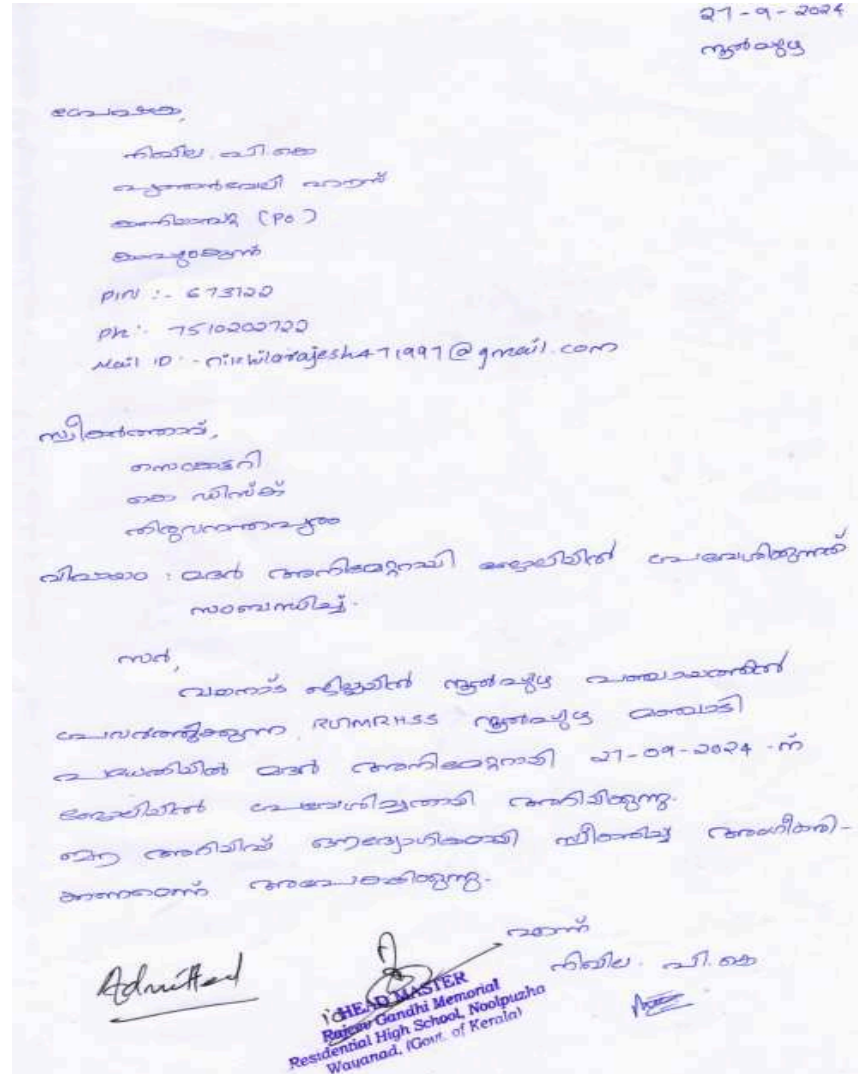 27-9-2024
നൂൽപ്പുഴ
പ്രേഷക,
നിഖില. പി.കെ
പുത്തൻവേലി ഹൗസ്
കണിയാമ്പറ്റ (PO)
PIN :- 673122
Ph :- 7510202722
Mail ID :- nikhilarajesh471997@gmail.com
സ്വീകർത്താവ്,
സെക്രട്ടറി
കെ ഡിസ്ക്
തിരുവനന്തപുരം
വിഷയം : മെന്റർ അനിമേറ്ററായി ജോലിയിൽ പ്രവേശിക്കുന്നത്
സംബന്ധിച്ച്.
സർ,
വയനാട് ജില്ലയിൽ നൂൽപ്പുഴ പഞ്ചായത്തിൽ
പ്രവർത്തിക്കുന്ന RGMRHSS നൂൽപ്പുഴ മഞ്ചാടി
പദ്ധതിയിൽ മെന്റർ അനിമേറ്ററായി 27-09-2024 -ന്
ജോലിയിൽ പ്രവേശിച്ചതായി അറിയിക്കുന്നു.
ഈ അറിയിപ്പ് ഔദ്യോഗികമായി സ്വീകരിച്ച് അംഗീകരി-
ക്കണമെന്ന് അപേക്ഷിക്കുന്നു.
എന്ന്
നിഖില. പി.കെ
Admitted
HEAD MASTER
Rajeev Gandhi Memorial
Residential High School, Noolpuzha
Wayanad, (Govt. of Kerala)